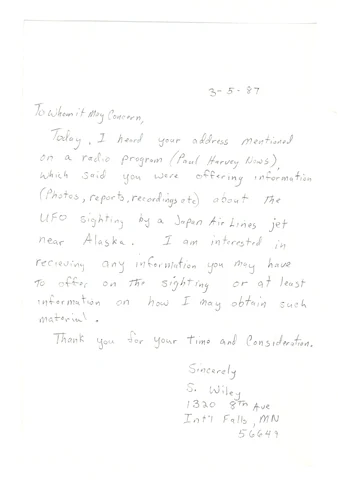 3-5-87
To Whom it May Concern,
Today, I heard your address mentioned
on a radio program (Paul Harvey News),
which said you were offering information
(Photos, reports, recordings etc) about The
UFO sighting by a Japan Air Lines jet
near Alaska. I am interested in
recieving any information you may have
To offer on The sighting or at least
information on how I may obtain such
material.
Thank you for your Time and Consideration.
Sincerely
S. Wiley
1320 8th Ave
Int'l Falls, MN
56649